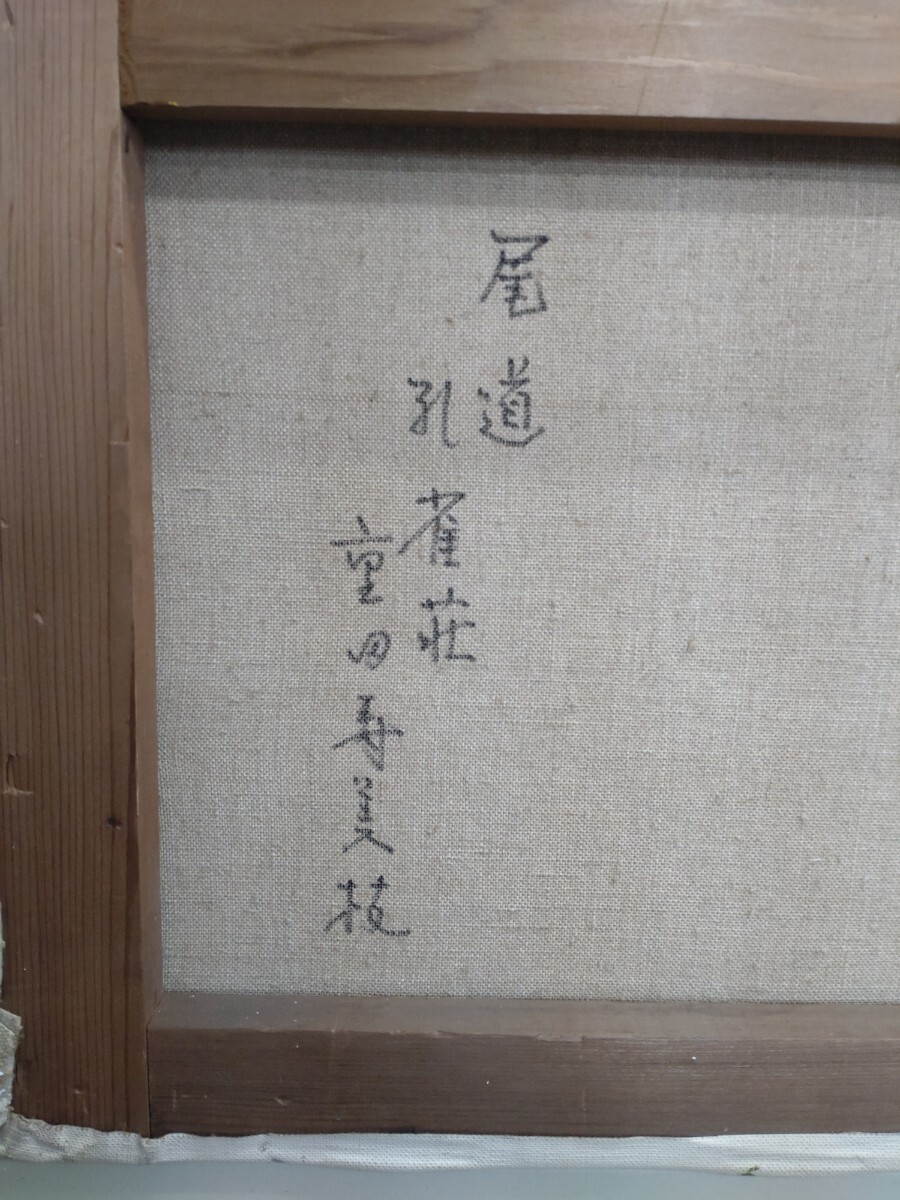 尾道
孔雀荘
重田寿美枝